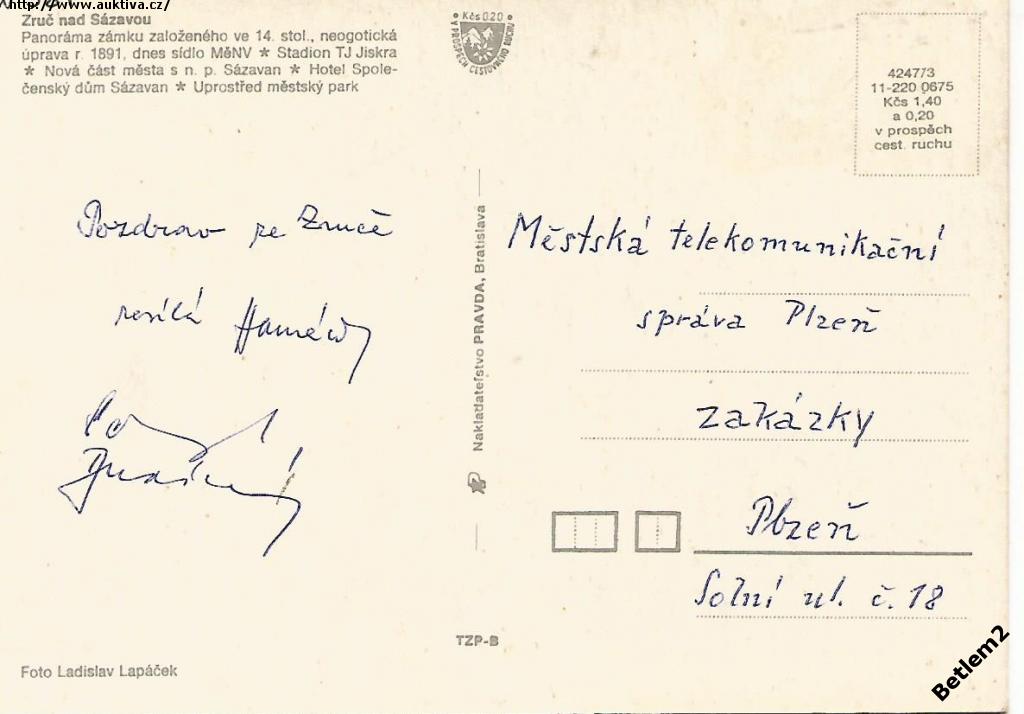 http://www.auktiva.cz/
Zruč nad Sázavou
Panoráma zámku založeného ve 14. stol., neogotická
úprava r. 1891, dnes sídlo MěNV * Stadion TJ Jiskra
* Nová část města s n. p. Sázavan * Hotel Spole-
čenský dům Sázavan * Uprostřed městský park
Kčs 0.20
V PROSPĚCH CESTOVNÉHO RUCHU
424773
11-220 0675
Kčs 1,40
a 0,20
v prospěch
cest. ruchu
Pozdrav ze Zruče
Nakladateľstvo PRAVDA, Bratislava
Městská telekomunikační
správa Plzeň
zakázky
Plzeň
Solní ul. č. 18
TZP-B
Foto Ladislav Lapáček
Betlem2